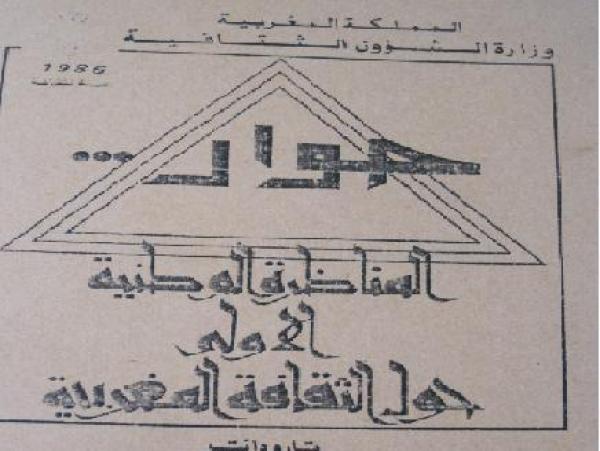 المملكة المغربية
وزارة الشؤون الثقافية
1986
حوار...
المناظرة الوطنية
الأولى
حول الثقافة المغربية
تارودانت